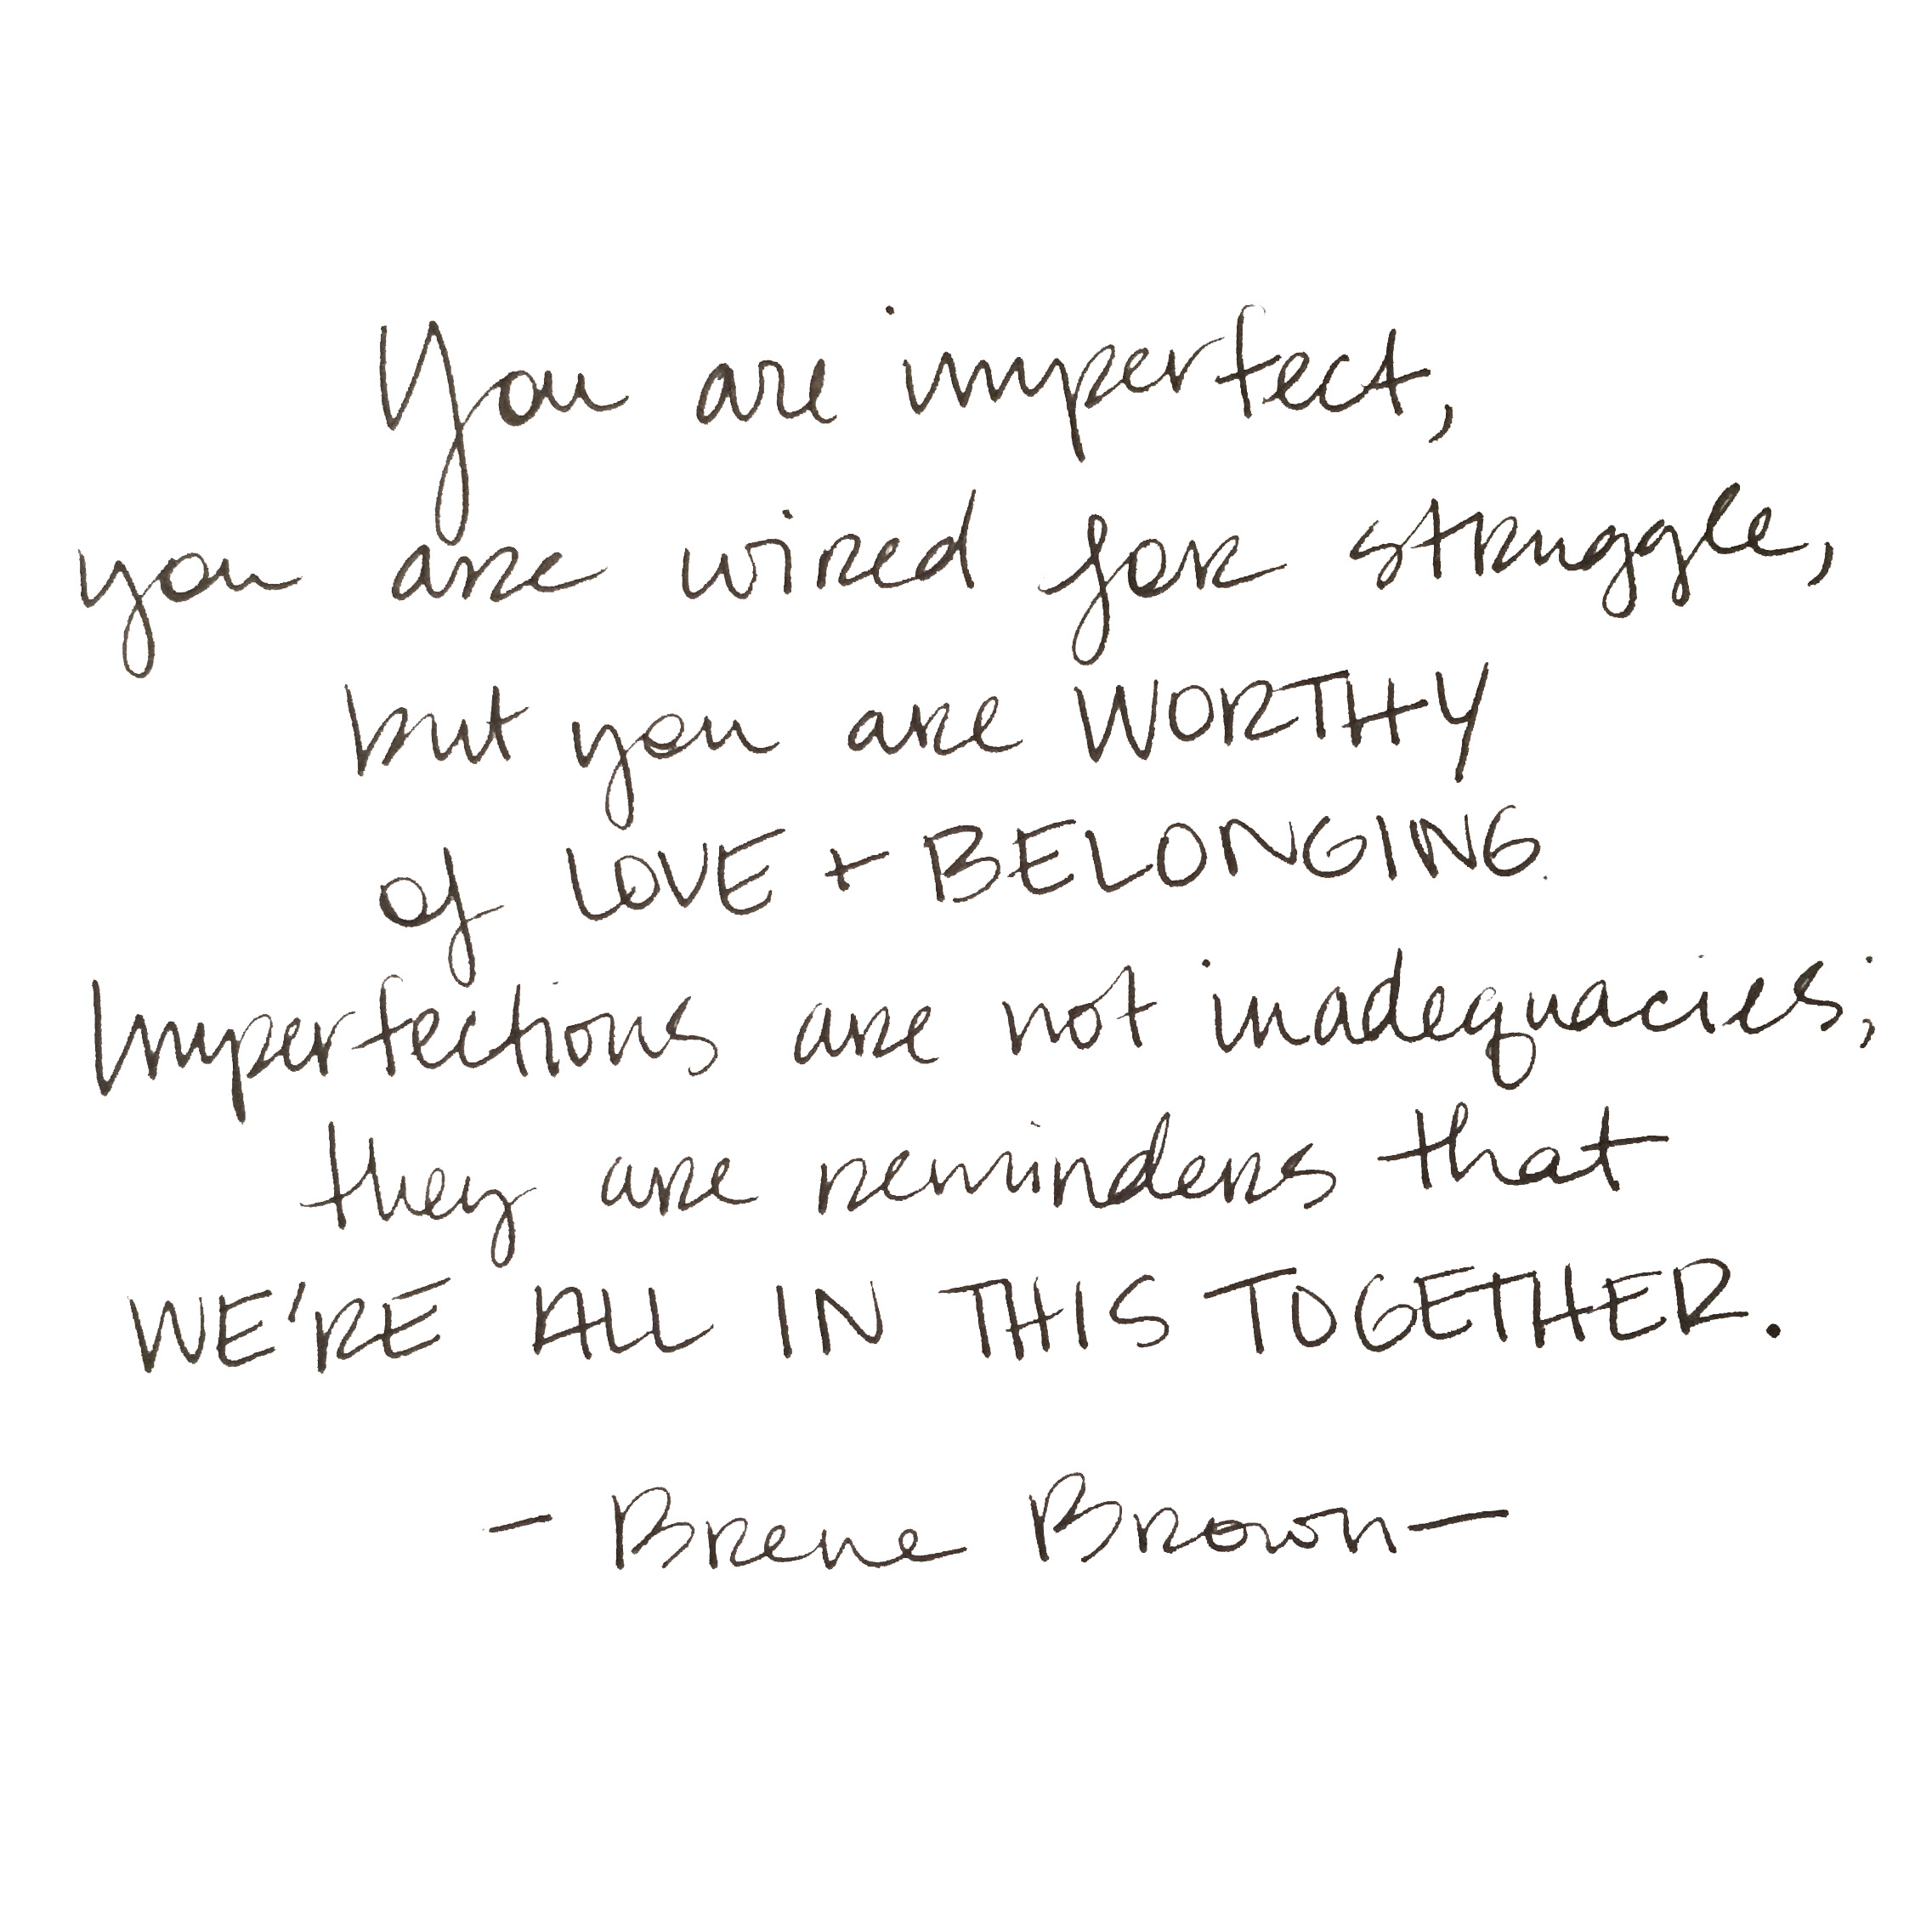 You are imperfect,
you are wired for struggle,
but you are WORTHY
of LOVE + BELONGING.
Imperfections are not inadequacies;
they are reminders that
WE'RE ALL IN THIS TOGETHER.
- Brene Brown -